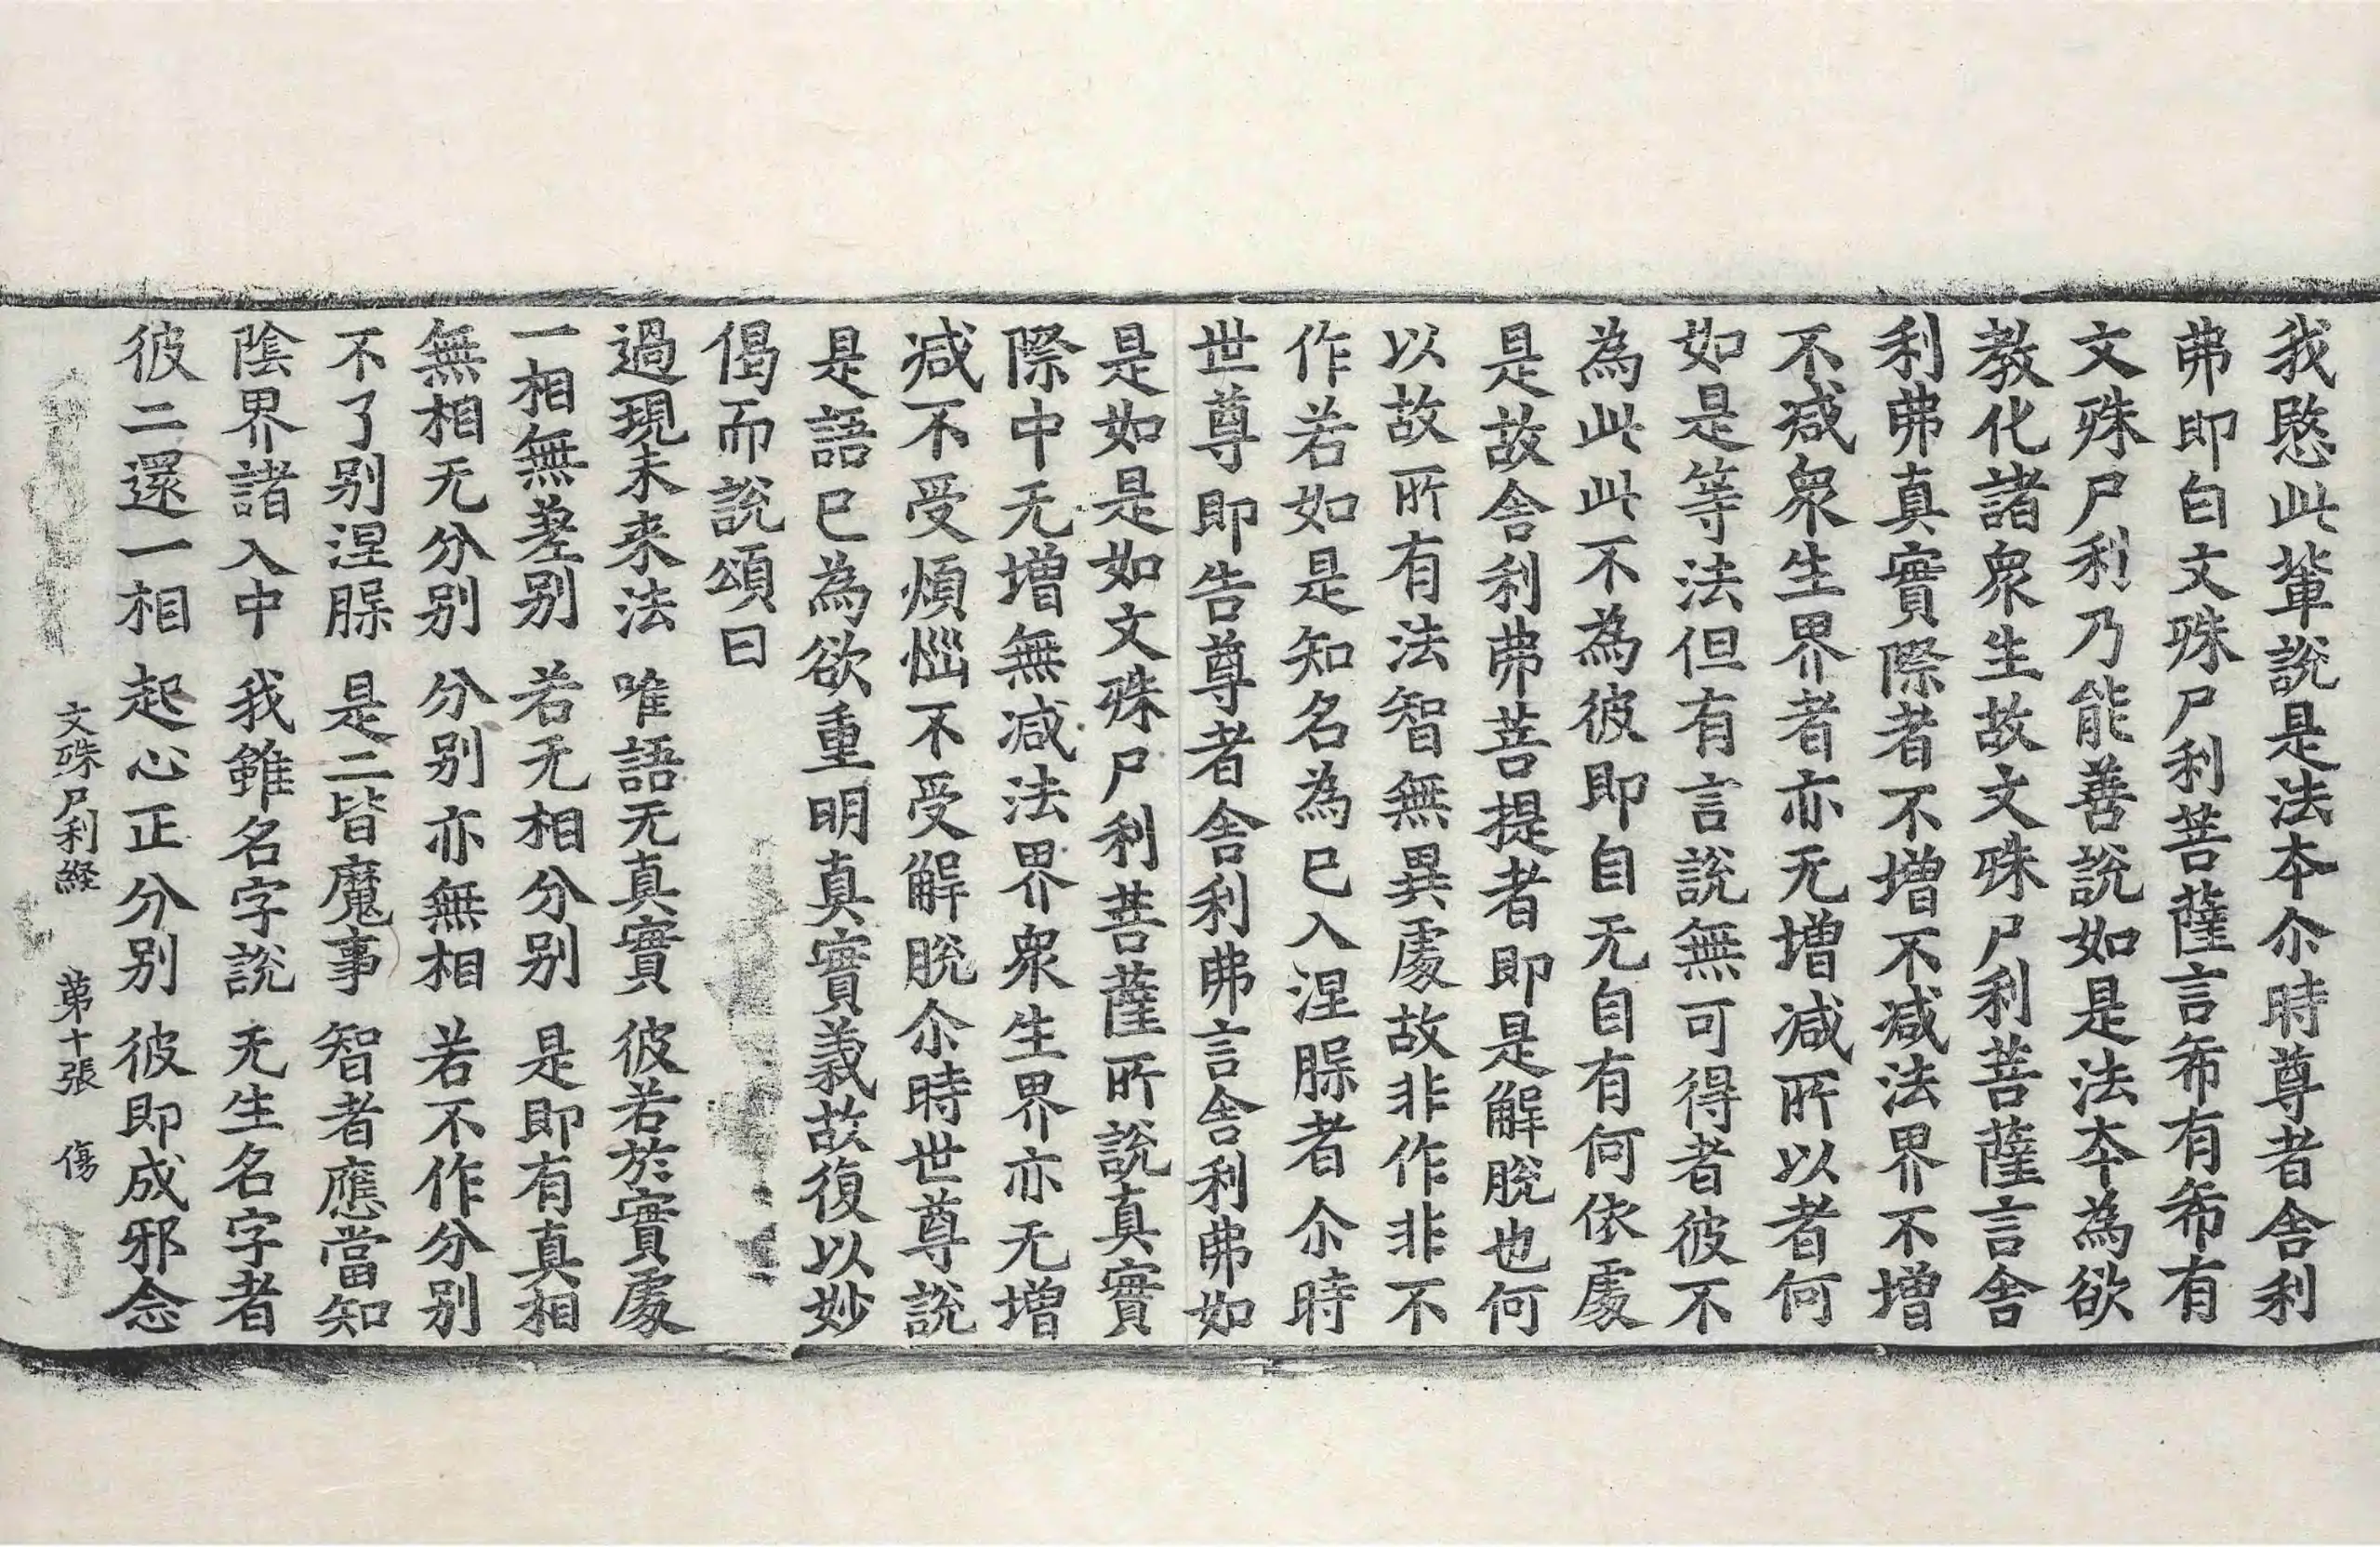 我愍此輩說是法夲尒時尊者舍利
弗即白文殊尸利菩薩言希有希有
文殊尸利乃能善說如是法夲為欲
教化諸衆生故文殊尸利菩薩言舍
利弗真實際者不增不減法界不增
不減衆生界者亦无增減所以者何
如是等法但有言說無可得者彼不
為此此不為彼即自无自有何依處
是故舍利弗菩提者即是解脫也何
以故所有法智無異處故非作非不
作若如是知名為已入涅槃者尒時
世尊即告尊者舍利弗言舍利弗如
是如是如文殊尸利菩薩所說真實
際中无增無減法界衆生界亦无增
減不受煩惱不受解脫尒時世尊說
是語已為欲重明真實義故復以妙
偈而說頌曰
過現未来法 唯語无真實 彼若於實處
一相無差别 若无相分别 是即有真相
無相无分别 分别亦無相 若不作分别
不了别涅槃 是二皆魔事 智者應當知
陰界諸入中 我雖名字說 无生名字者
彼二還一相 起心正分别 彼即成邪念
文殊尸利経 第十張 傷